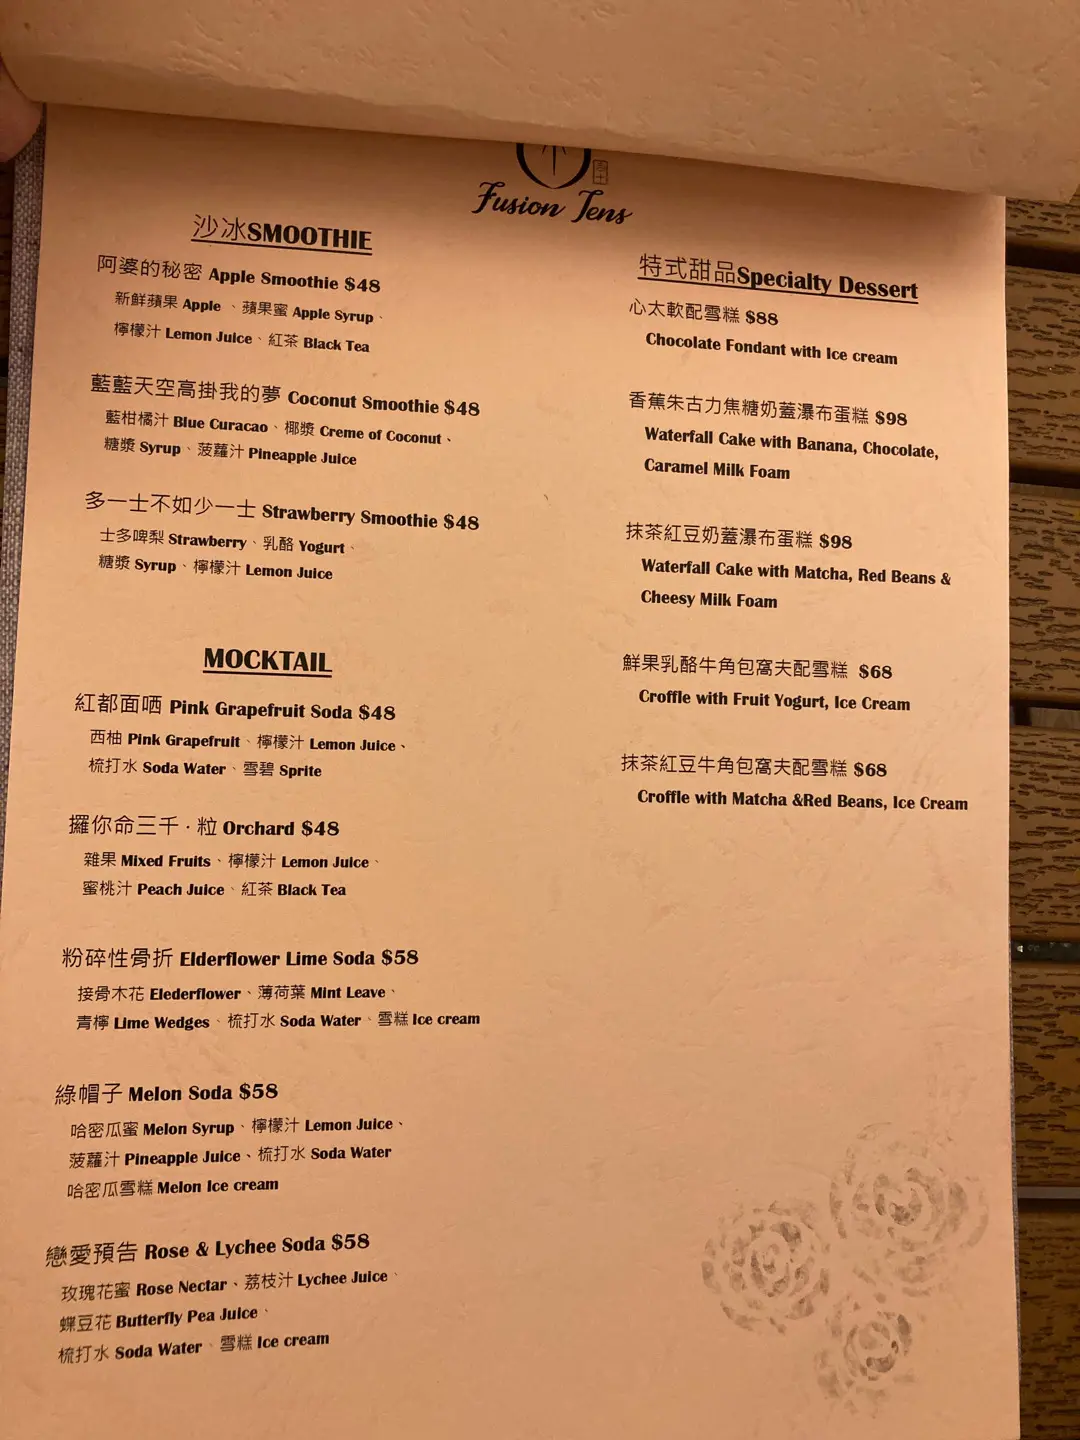 Fusion Tens
沙冰SMOOTHIE
阿婆的秘密 Apple Smoothie $48
新鮮蘋果 Apple、蘋果蜜 Apple Syrup、
檸檬汁 Lemon Juice、紅茶 Black Tea
藍藍天空高掛我的夢 Coconut Smoothie $48
藍柑橘汁 Blue Curacao、椰漿 Creme of Coconut、
糖漿 Syrup、菠蘿汁 Pineapple Juice
多一士不如少一士 Strawberry Smoothie $48
士多啤梨 Strawberry、乳酪 Yogurt、
糖漿 Syrup、檸檬汁 Lemon Juice
MOCKTAIL
紅都面哂 Pink Grapefruit Soda $48
西柚 Pink Grapefruit、檸檬汁 Lemon Juice、
梳打水 Soda Water、雪碧 Sprite
攞你命三千·粒 Orchard $48
雜果 Mixed Fruits、檸檬汁 Lemon Juice、
蜜桃汁 Peach Juice、紅茶 Black Tea
粉碎性骨折 Elderflower Lime Soda $58
接骨木花 Elederflower、薄荷葉 Mint Leave、
青檸 Lime Wedges、梳打水 Soda Water、雪糕 Ice cream
綠帽子 Melon Soda $58
哈密瓜蜜 Melon Syrup、檸檬汁 Lemon Juice、
菠蘿汁 Pineapple Juice、梳打水 Soda Water
哈密瓜雪糕 Melon Ice cream
戀愛預告 Rose & Lychee Soda $58
玫瑰花蜜 Rose Nectar、荔枝汁 Lychee Juice、
蝶豆花 Butterfly Pea Juice、
梳打水 Soda Water、雪糕 Ice cream
特式甜品Specialty Dessert
心太軟配雪糕 $88
Chocolate Fondant with Ice cream
香蕉朱古力焦糖奶蓋瀑布蛋糕 $98
Waterfall Cake with Banana, Chocolate,
Caramel Milk Foam
抹茶紅豆奶蓋瀑布蛋糕 $98
Waterfall Cake with Matcha, Red Beans &
Cheesy Milk Foam
鮮果乳酪牛角包窩夫配雪糕 $68
Croffle with Fruit Yogurt, Ice Cream
抹茶紅豆牛角包窩夫配雪糕 $68
Croffle with Matcha &Red Beans, Ice Cream